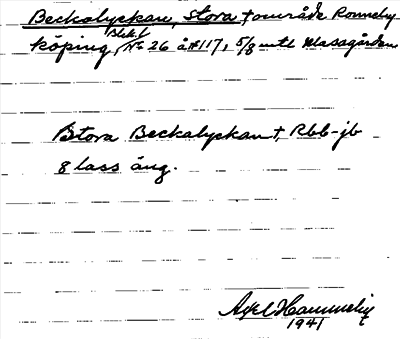 Beckalyckan, Stora + område Ronneby
köping, Blek. l. No 26 å #117, 5/8 mtl Klasagården
Stora Beckalyckan +, Rbb-jb
8 lass äng.
Axel Hammelin
1941